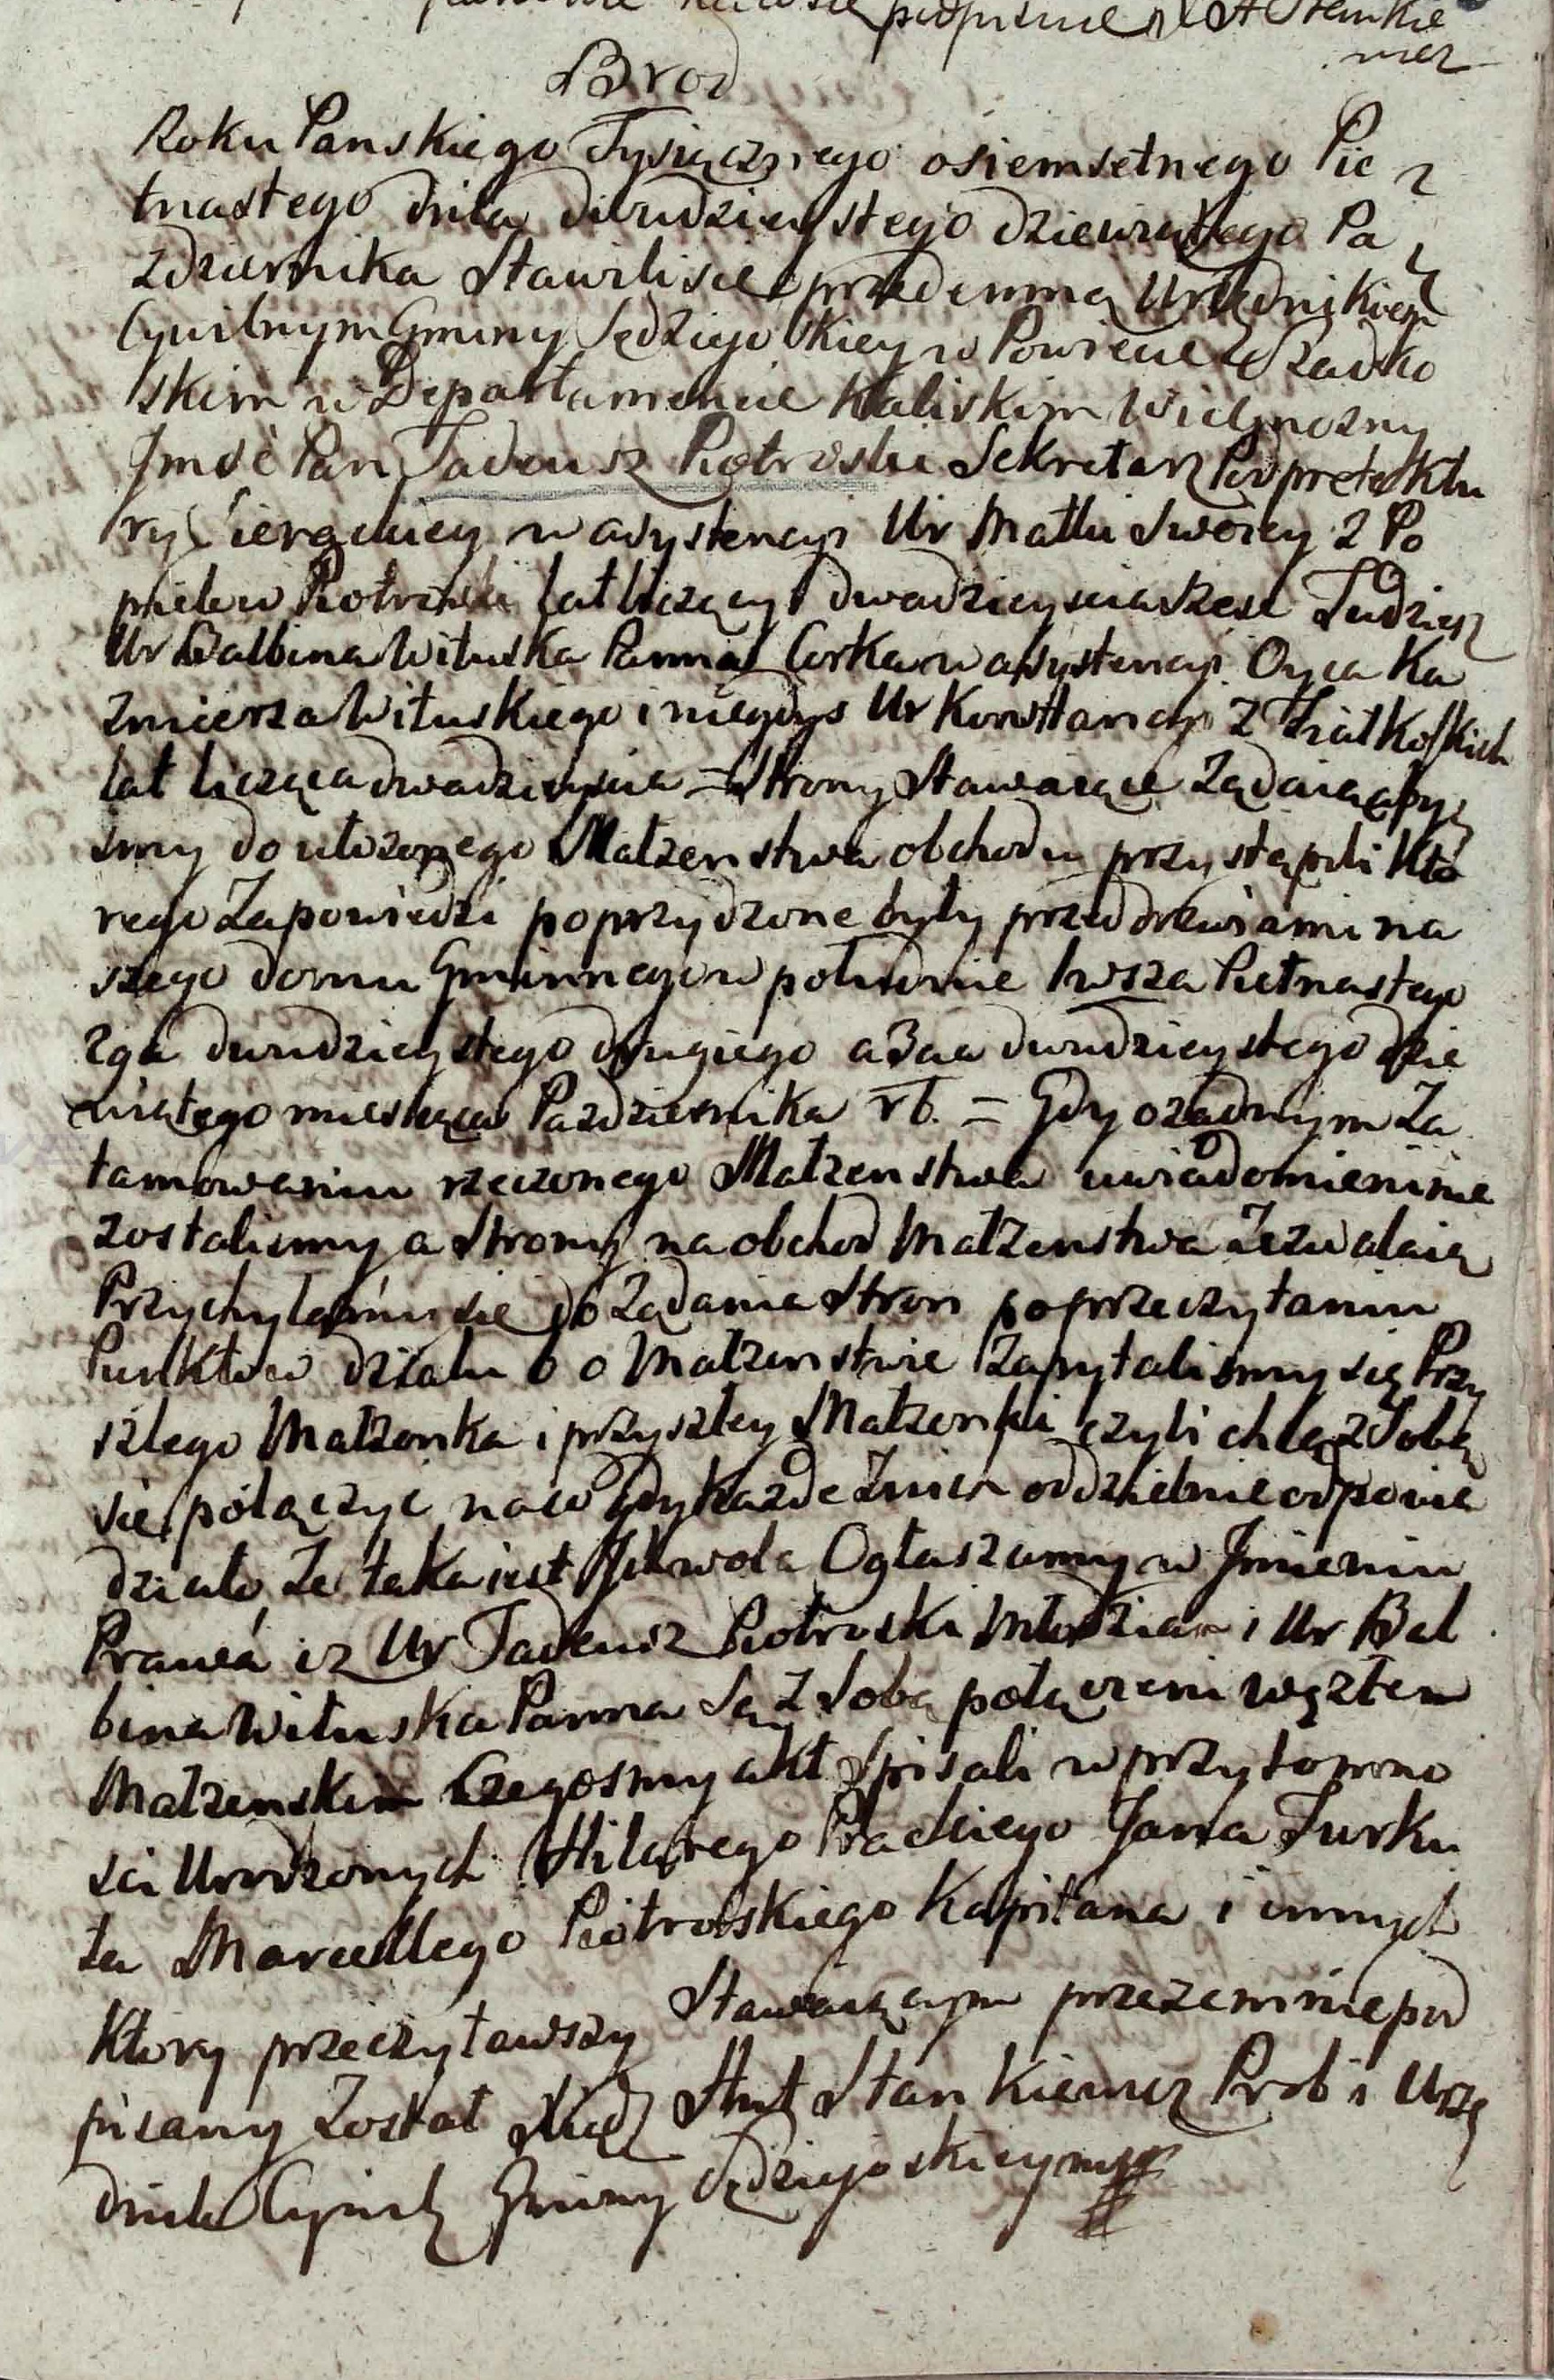 podpisuie X A Stankie
wicz
Brod
Roku Panskiego Tysiącznego osiemsetnego Pie
tnastego dnia dwudziestego dziewiątego Pa
zdziernika Stawili sie przedemną Urzędnikiem
Cywilnym Gminy Sędziegoskiey w Powiecie Szadko
skim w Departamencie Kaliskim Wielmozny
Jmść Pan Tadeusz Piotroski Sekretarz Podprefektu
ry w asystencyi Ur Matki Swoiey Z Po
Piotroski lat liczący dwadziescia szesc Tudziesz
Ur Balbina Wituska Panna Corka w assystencyi Oyca Ka
zmierza Wituskiego i niegdys Ur Konstancyi Z
lat licząca dwadziescia = Strony Stawaiące Ządaią aby
smy do ułozonego Małzenstwa obchodu przystąpili Kto
rego Zapowiedzi poprzydzone były przed drzwiami na
szego domu Gminnego w południe 1wsza Pietnastego
2ga dwudziestego drugiego a 3cia dwudziestego dzie
wiątego miesiąca Pazdziernika rb. = Gdy o zadnym Za
tamowaniu rzeczonego Małzenstwa uwiadomieni nie
zostalismy a Strony na obchod Małzenstwa Zezwalaią
Przychylaiąc sie do Ządania Stron po przeczytaniu
Punktow działu 6 o Małzenstwie Zapytalismy się Przy
szlego Małzonka i przyszley Małzonki czyli chcą z Sobą
sie połączyć na co gdy kazde Znich oddzielnie odpowie
działo Ze taka iest Ich wola Ogłaszamy w Jmieniu
Prawa iz Ur Tadeusz Piotroski Młodzian i Ur Bal
bina Wituska Panna Są Z Sobą połączeni węzłem
Małzenskim Czegosmy akt Spisali w przytomno
sci Urodzonych Hilarego Prackiego Jana Turku
ła Marcellego Piotroskiego Kapitana i innych
Ktory przeczytawszy Stawaiącym przezemnie pod
pisany Został Xiądz Ant Stankiewicz Prob i Urzę
dnik Cywil Gminy Sędziegoskiey